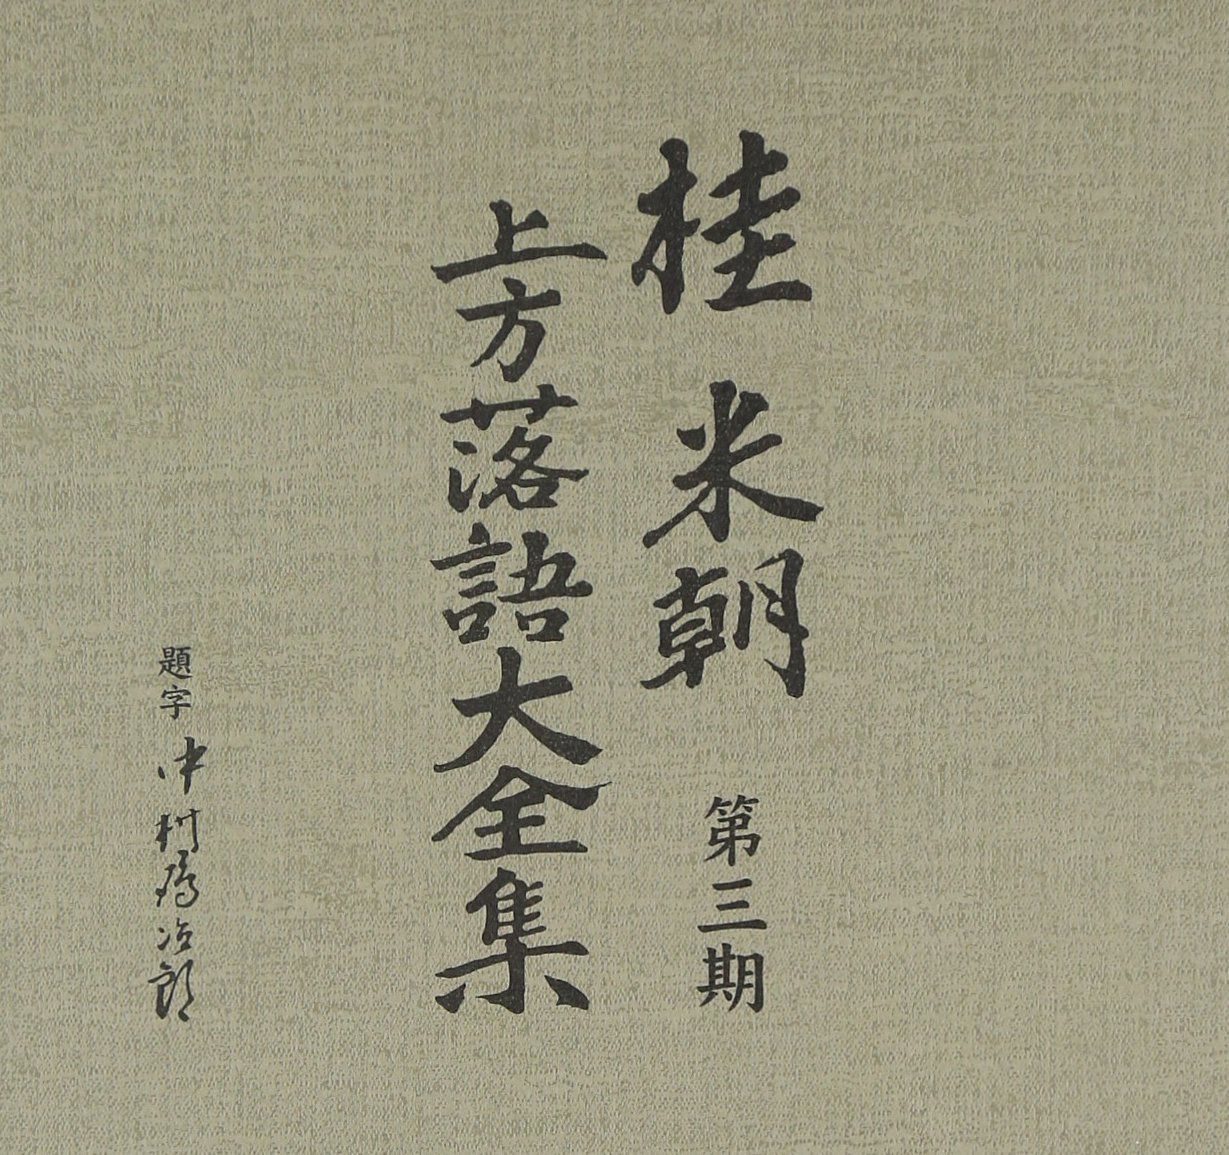 桂米朝
第三期
上方落語大全集
題字 中村鴈治郎